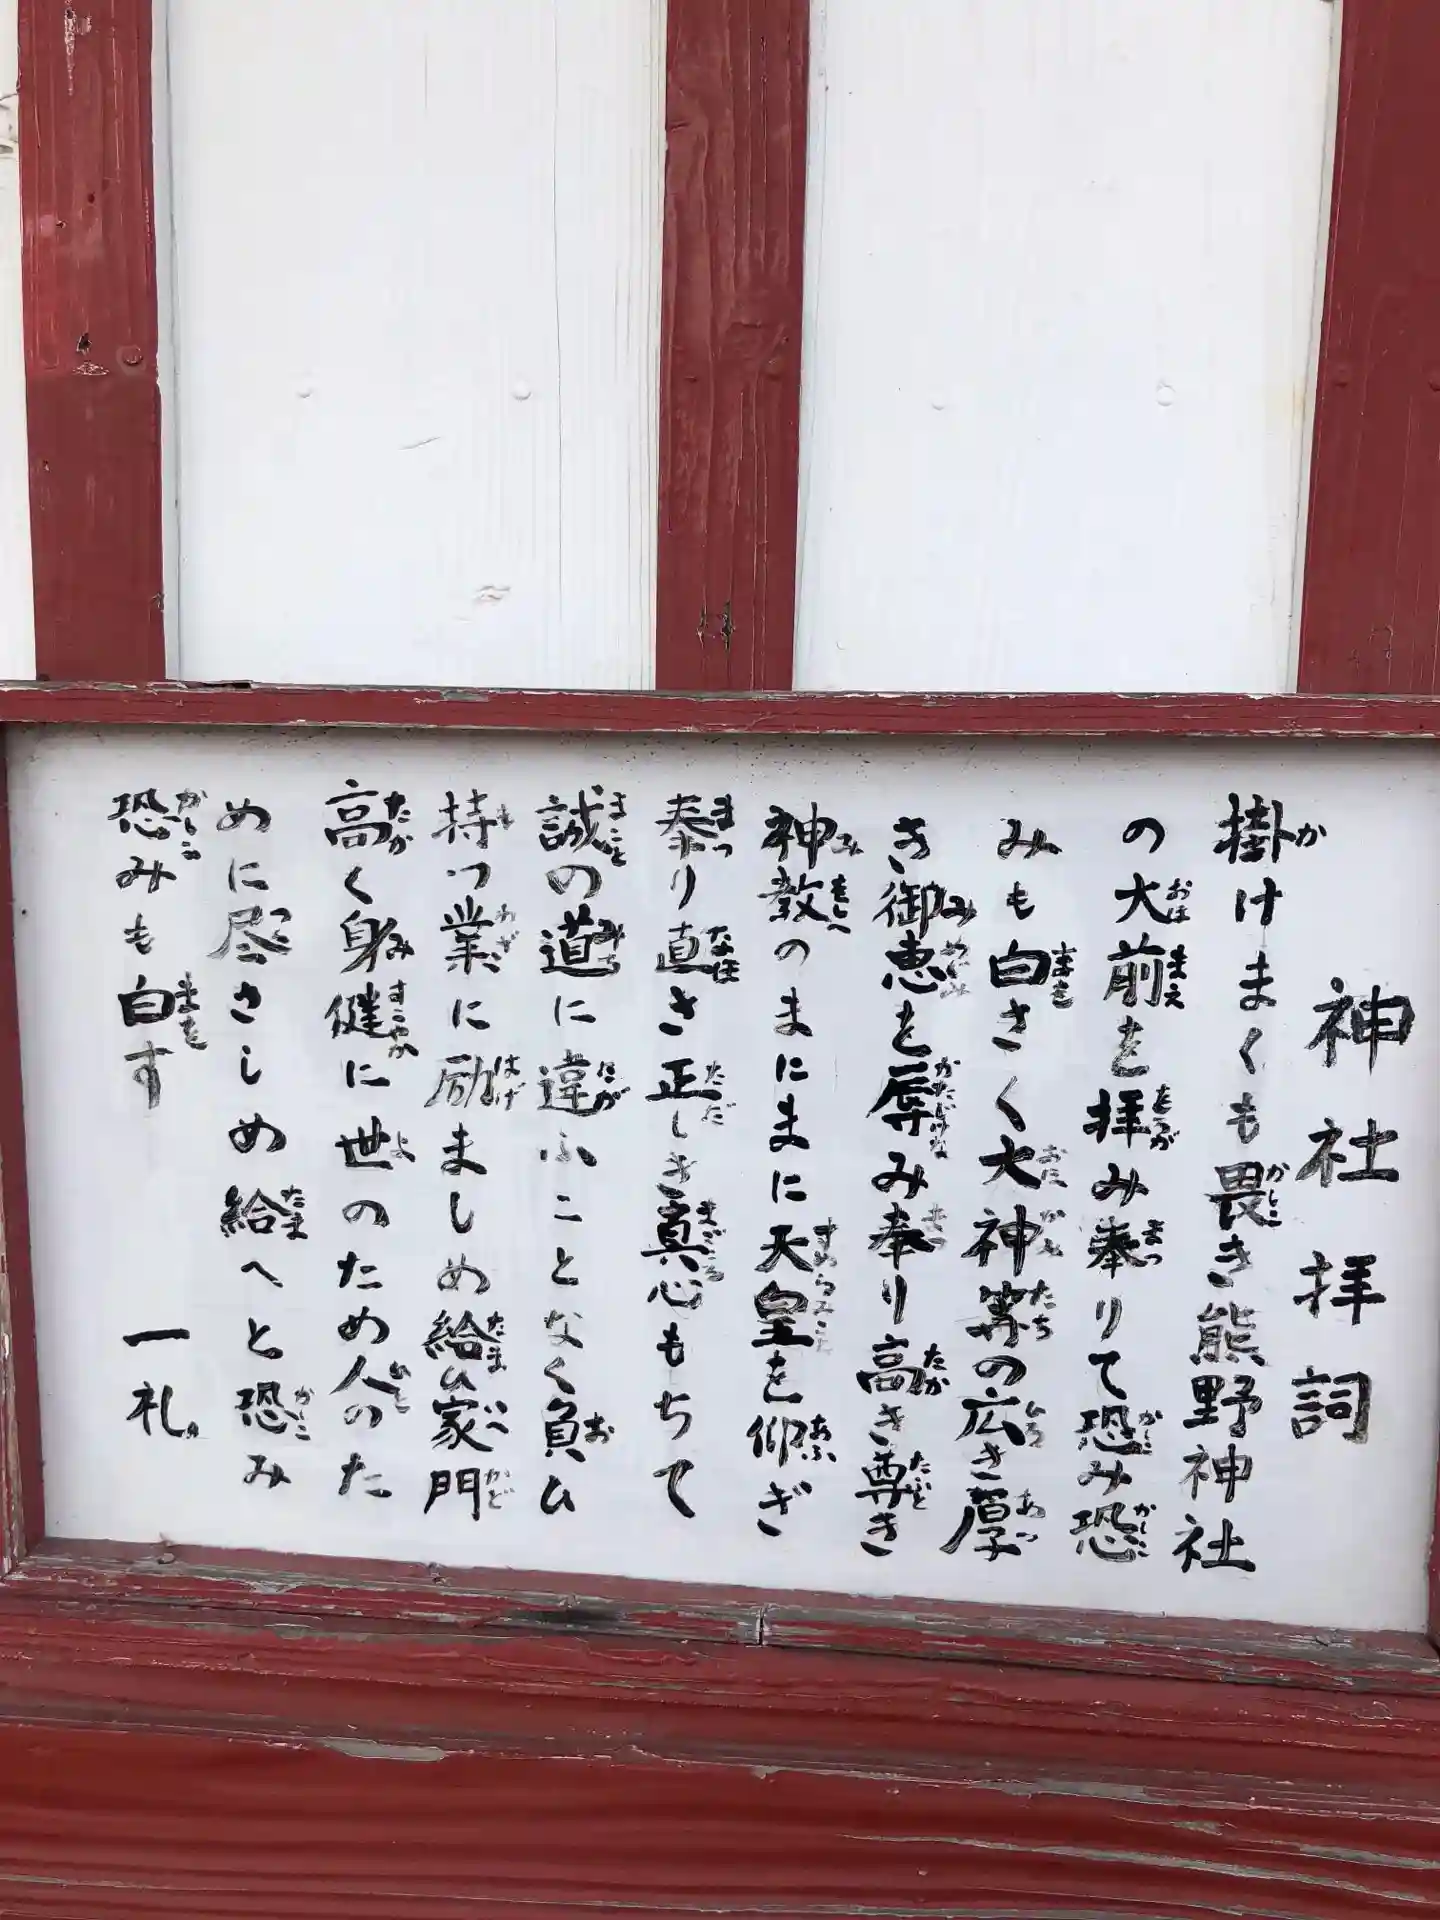 神社拝詞
掛けまくも畏き熊野神社
の大前を拝み奉りて恐み恐
みも白さく大神等の広き厚
き御恵を辱み奉り高き尊き
神教のまにまに天皇を仰ぎ
奉り直き正しき真心もちて
誠の道に違ふことなく負ひ
持つ業に励ましめ給ひ家門
高く身健に世のため人のた
めに尽さしめ給へと恐み
恐みも白す 一礼。